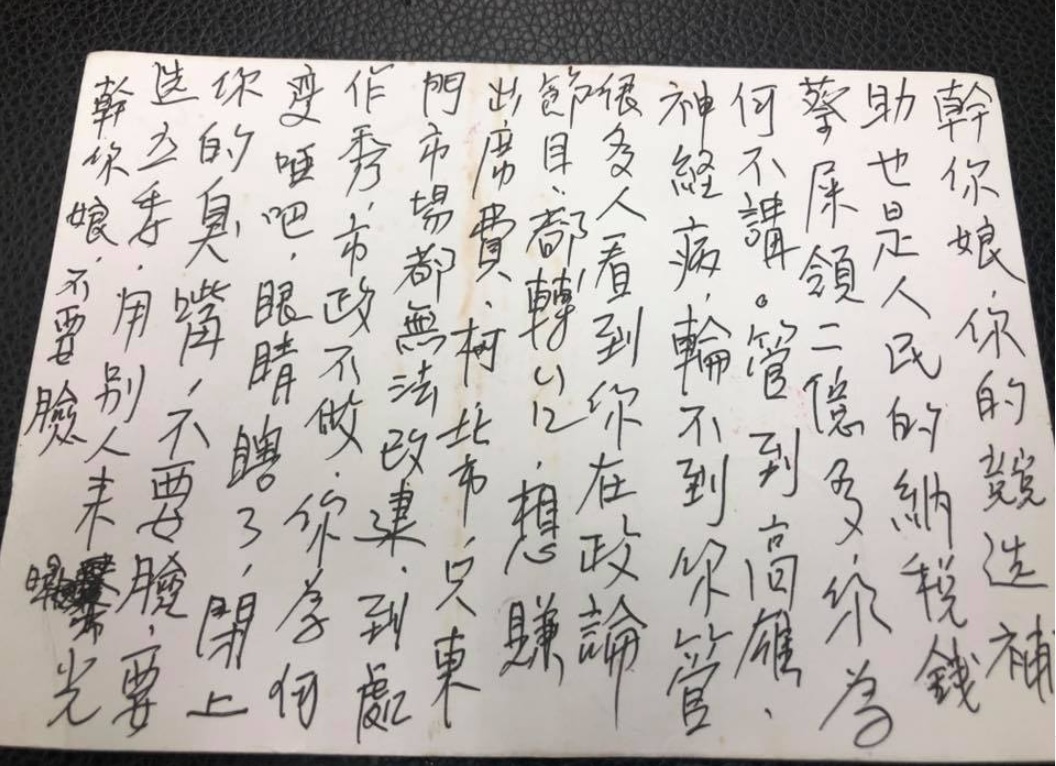 幹你娘.你的競选補
助也是人民的納税錢
蔡屎領二億多,你為
何不講。管到高雄.
神経病,輪不到你管
很多人看到你在政論
節目、都轉 , 想賺
出席費、柯北市,只東
門市場都無法改建.到處
作秀,市政不做.你為何
变啞吧.眼睛瞎了,閉上
你的臭嘴,不要臉,要
选立委.用別人来 光
幹你娘,不要臉